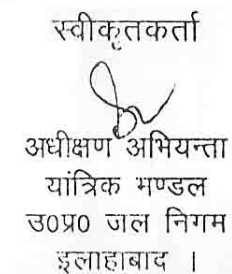 स्वीकृतकर्ता
अधीक्षण अभियन्ता
यांत्रिक मण्डल
उ०प्र० जल निगम
इलाहाबाद ।